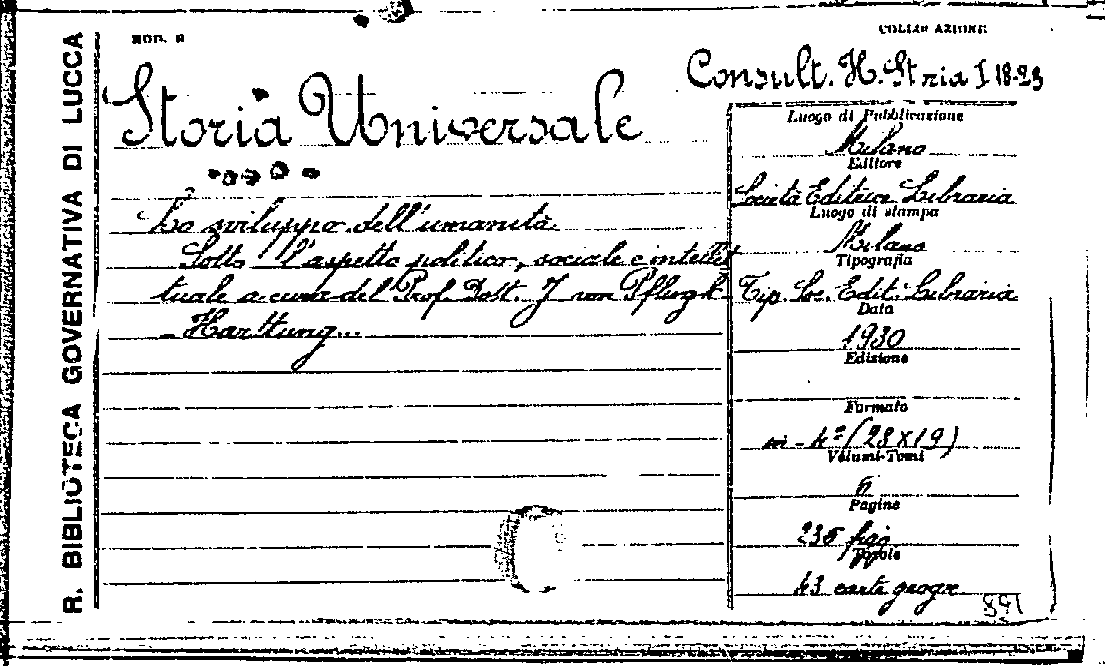 R. BIBLIOTECA GOVERNATIVA DI LUCCA
MOD. B
COLLOCAZIONE
Consult. H. Storia I 18-23
Storia Universale
Lo sviluppo dell'umanità
Sotto l'aspetto politico, sociale e intellet
tuale a cura del Prof. Dott. J von Pflugk-
-Harttung...
Luogo di Pubblicazione
Milano
Editore
Società Editrice Libraria
Luogo di stampa
Milano
Tipografia
Tip. Soc. Edit. Libraria
Data
1930
Edizione
Formato
in-4º (28x19)
Volumi-Tomi
6
Pagine
235 fig.
Tavole
43 carte geogr
891